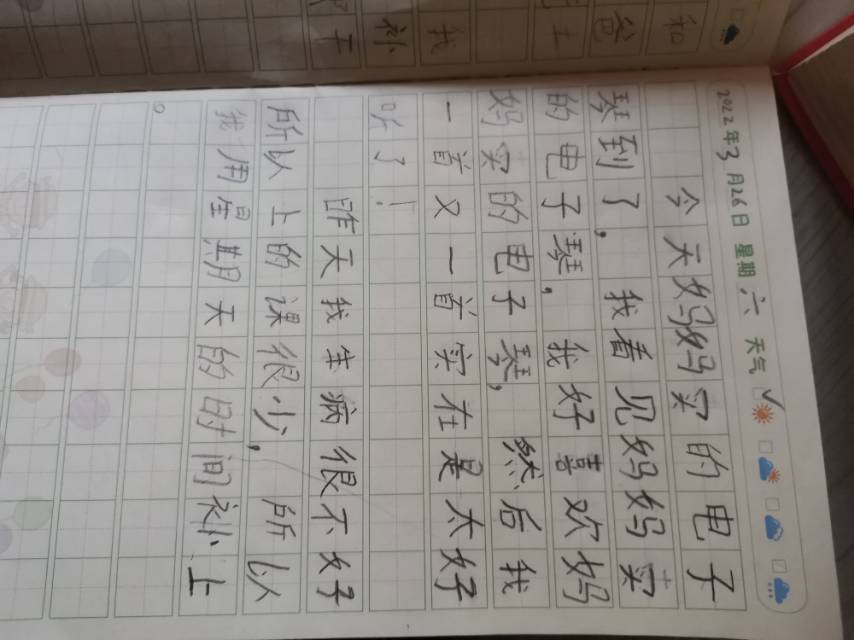 和
爸
我
补
2022年3月26日 星期六 天气
今天妈妈买的电子
琴到了,我看见妈妈买
的电子琴,我好喜欢妈
妈买的电子琴,然后我
一首又一首实在是太好
听了!
昨天我生病很不好
所以上的课很少,所以
我用星期天的时间补上
。